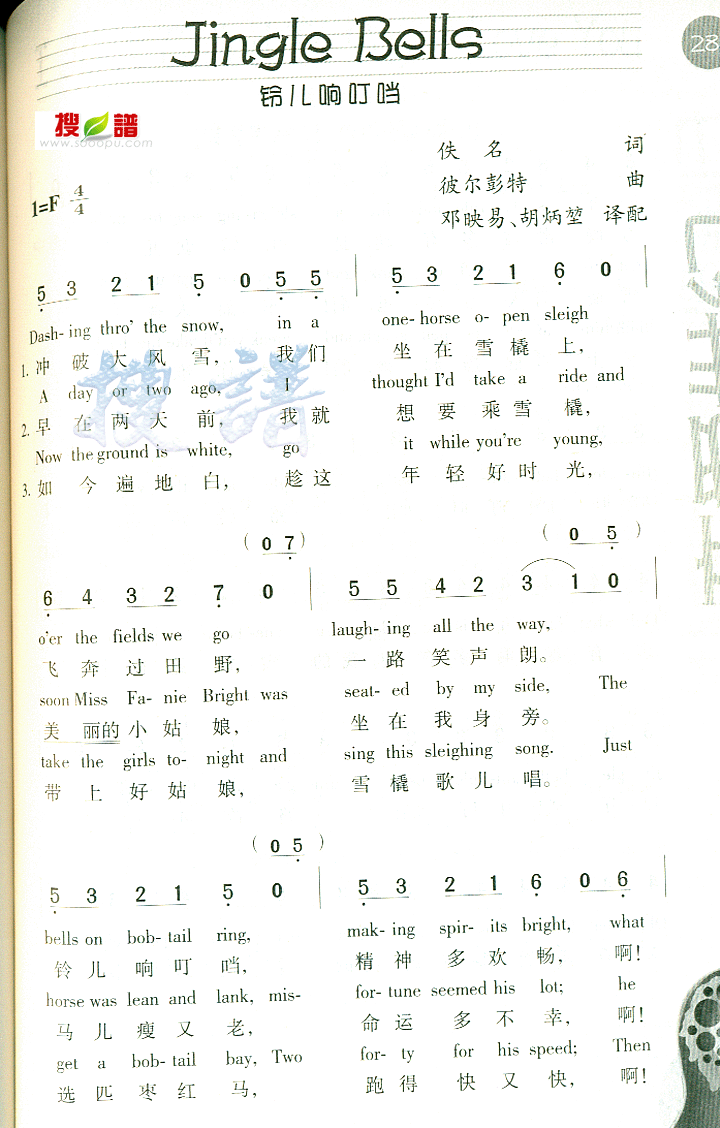 Jingle Bells
28
铃儿响叮当
搜譜
www.sooopu.com
佚名 词
彼尔彭特 曲
1=F 4/4
邓映易、胡炳堃 译配
5 3 2 1 5 0 5 5 | 5 3 2 1 6 0 |
Dash- ing thro' the snow, in a one- horse o- pen sleigh
1. 冲破大风雪, 我们 坐在雪橇上,
A day or two ago, I thought I'd take a ride and
2. 早在两天前, 我就 想要乘雪橇,
Now the ground is white, go it while you're young,
3. 如今遍地白, 趁这 年轻好时光,
(0 7) (0 5)
6 4 3 2 7 0 | 5 5 4 2 3 1 0 |
o'er the fields we go laugh- ing all the way,
飞奔过田野, 一路笑声朗。
soon Miss Fa- nie Bright was seat- ed by my side, The
美丽的小姑娘, 坐在我身旁。
take the girls to- night and sing this sleighing song. Just
带上好姑娘, 雪橇歌儿唱。
(0 5)
5 3 2 1 5 0 | 5 3 2 1 6 0 6 |
bells on bob- tail ring, mak- ing spir- its bright, what
铃儿响叮当, 精神多欢畅, 啊!
horse was lean and lank, mis- for- tune seemed his lot; he
马儿瘦又老, 命运多不幸, 啊!
get a bob- tail bay, Two for- ty for his speed; Then
选匹枣红马, 跑得快又快, 啊!